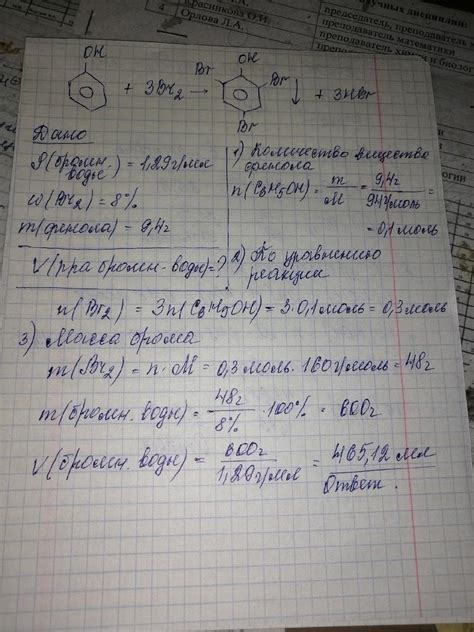 учных дисциплин:
Красникова О.И.
председатель, преподаватель
Орлова Л.А.
преподаватель
преподаватель математики
преподаватель химии и биолог
OH
OH
Br
Br
Br
+ 3Br₂ → ↓ + 3HBr
Дано
ρ(бромн. воды) = 1,29г/мл
w(Br₂) = 8%
m(фенола) = 9,4г
V(р-ра бромн. воды) = ?
1) Количество вещества
фенола
n(C₆H₅OH) = m/M = 9,4г/94г/моль =
= 0,1 моль
2) По уравнению
реакции
n(Br₂) = 3n(C₆H₅OH) = 3·0,1моль = 0,3 моль
3) Масса брома
m(Br₂) = n·M = 0,3 моль·160г/моль = 48г
m(бромн. воды) = 48г/8% · 100% = 600г
V(бромн. воды) = 600г/1,29г/мл = 465,12 мл
Ответ.